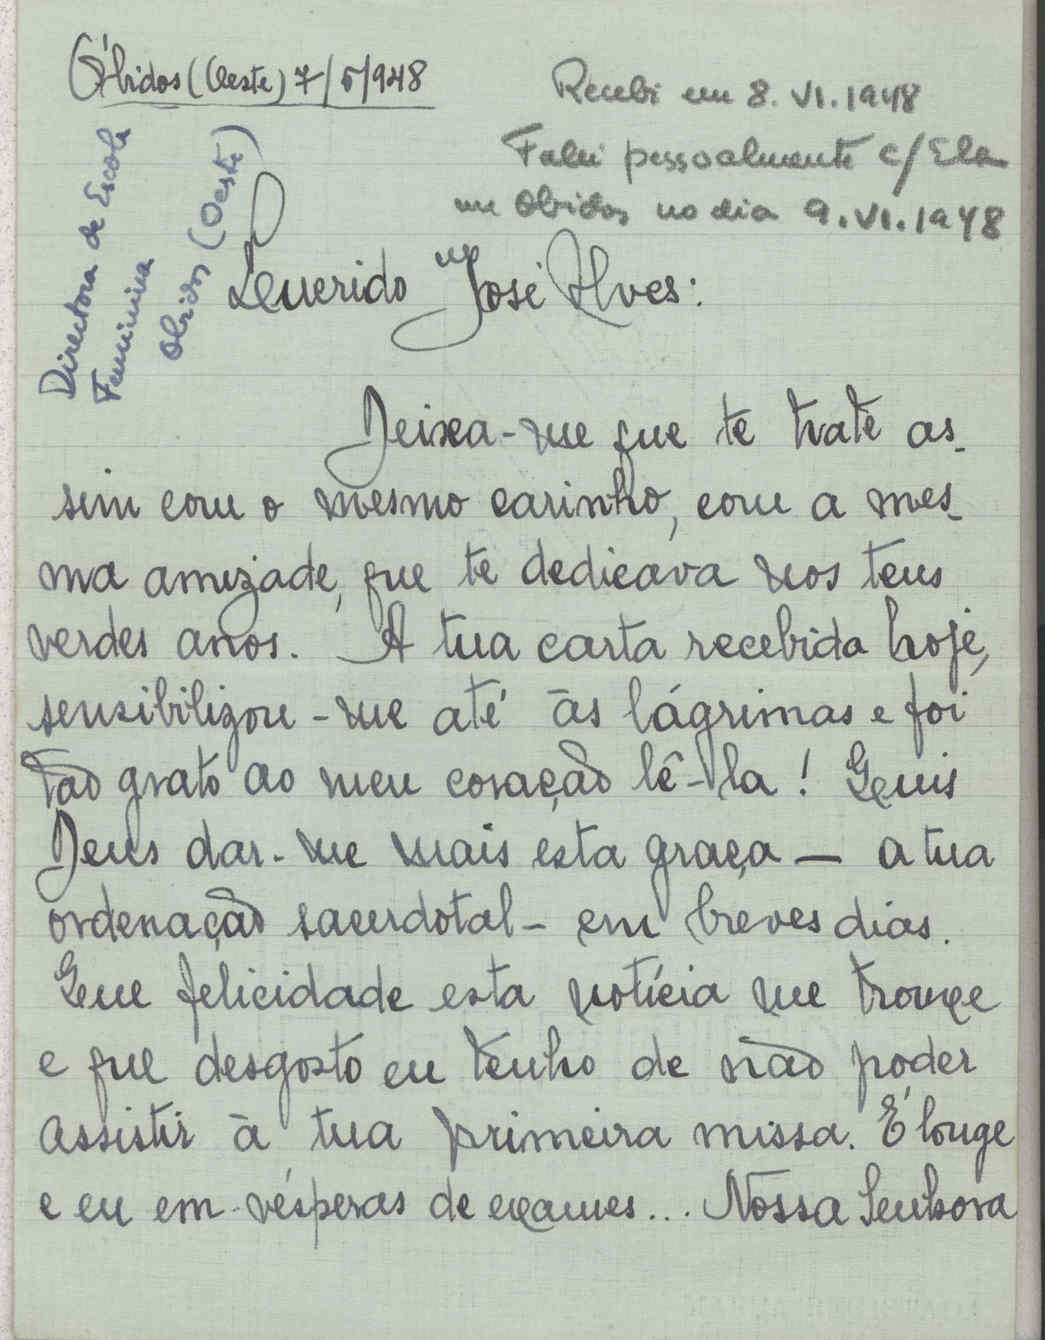 Óbidos (Oeste) 7/5/948
Recebi em 8.VI.1948
Falei pessoalmente c/Ela
em Obidos no dia 9.VI.1948
Directora de Escola
Feminina
Obidos (Oeste)
Querido José Alves:
Deixa-me que te trate as-
sim com o mesmo carinho, com a mes-
ma amizade, que te dedicava nos teus
verdes anos. A tua carta recebida hoje,
sensibilizou-me até às lágrimas e foi
tão grato ao meu coração lê-la! Quis
Deus dar-me mais esta graça — a tua
ordenação sacerdotal - em breves dias.
Que felicidade esta notícia me trouxe
e que desgosto eu tenho de não poder
assistir à tua primeira missa. É longe
e eu em vésperas de exames... Nossa Senhora